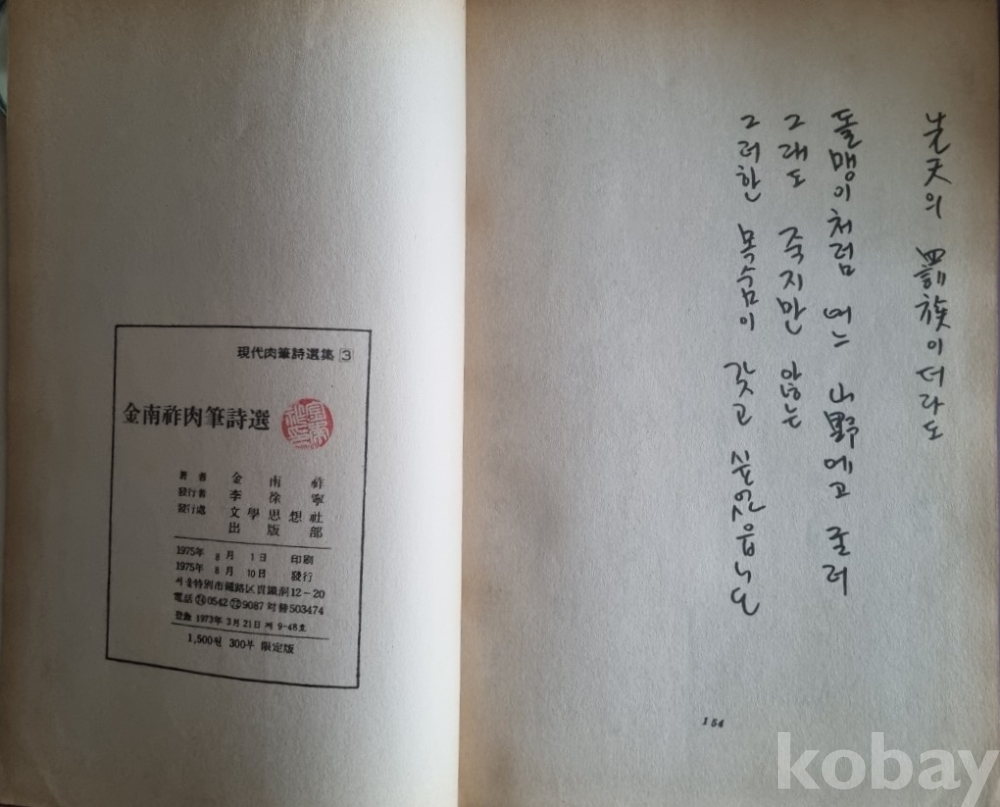 現代肉筆詩選集 3
金南祚肉筆詩選
著者 金南祚
發行者 李
發行處 文學思想社
出版部
1975年 8月 1日 印刷
1975年 8月 10日 發行
서울特別市鍾路区貫鐵洞12-20
電話 0542 9087 対替503474
登錄 1973年 3月21日 제 9-48호
1,500원 300부 限定版
先天의 罰族이더라도
돌맹이처럼 어느 山野에고 굴러
그래도 죽지만 않는
그러한 목숨이 갖고 싶었읍니다
154
kobay